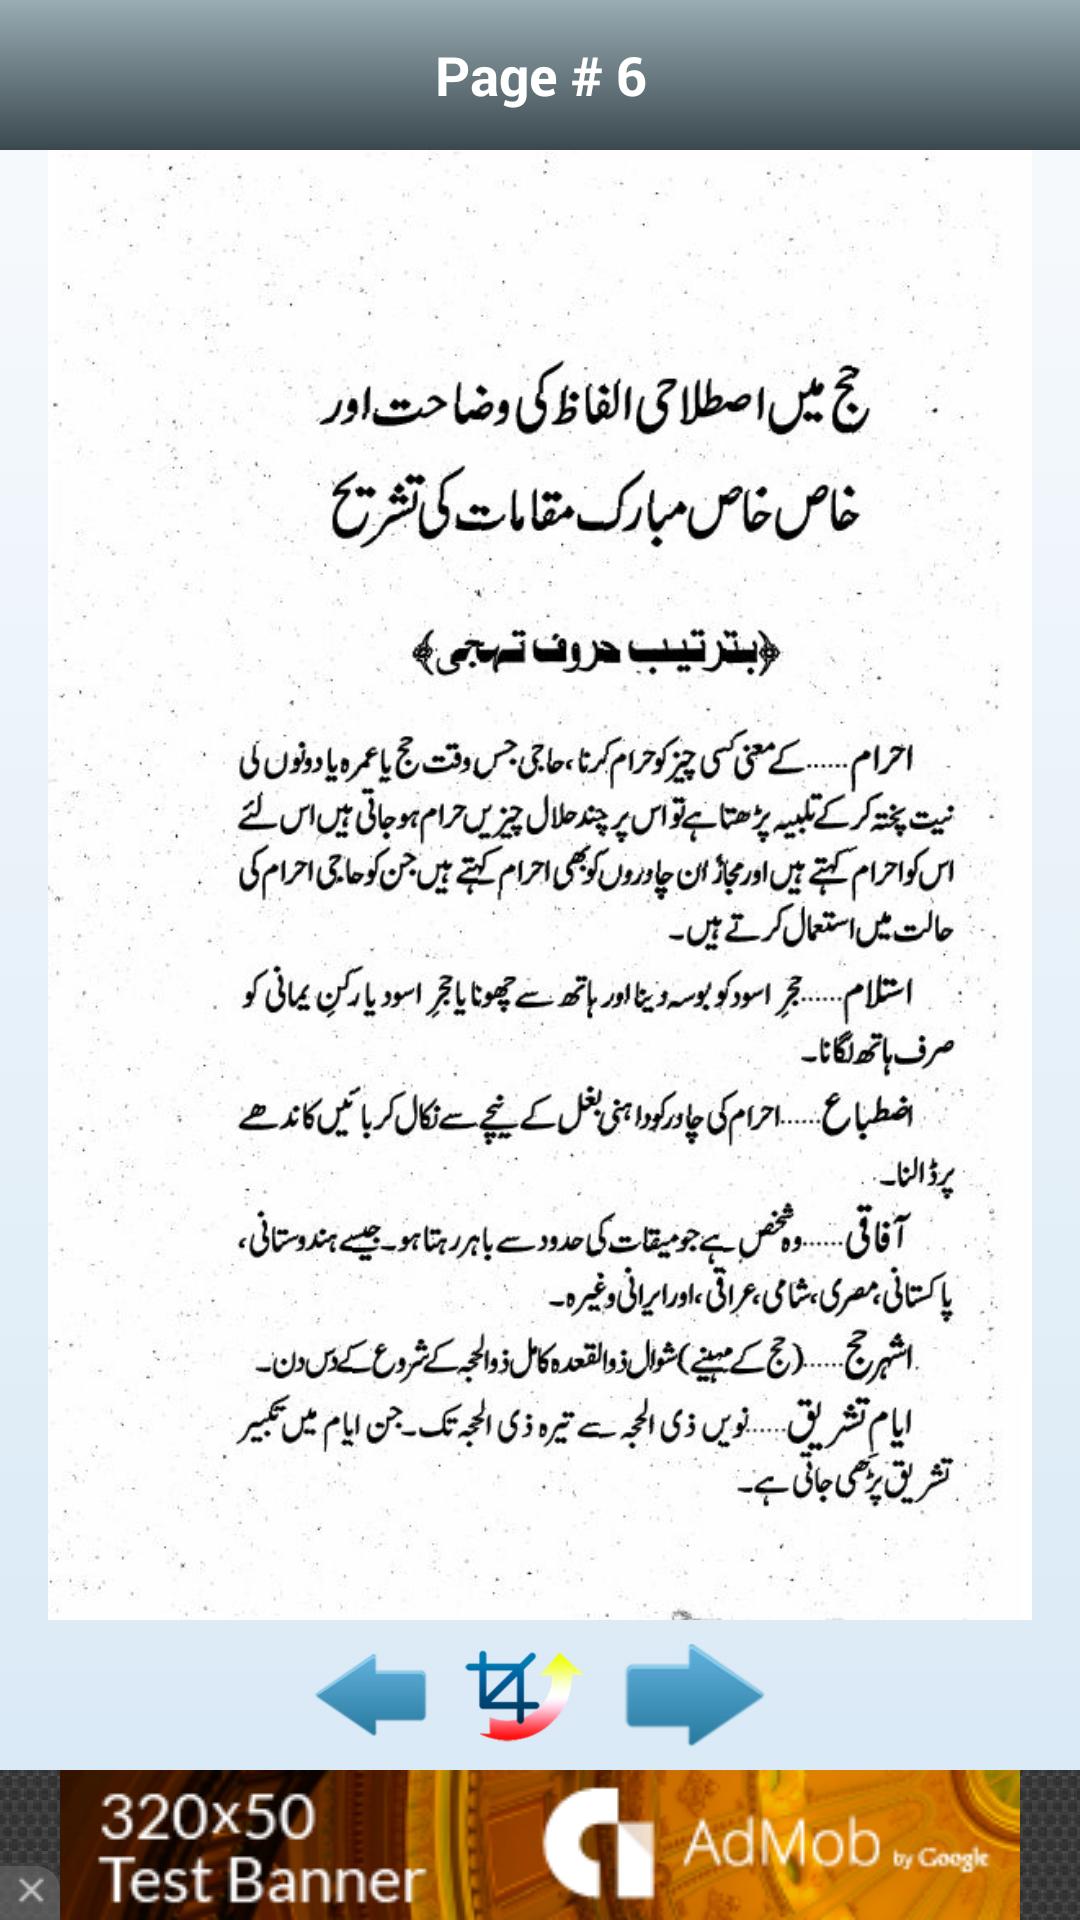 Page # 6
حج میں اصطلاحی الفاظ کی وضاحت اور
خاص خاص مبارک مقامات کی تشریح
﴿بترتیب حروف تہجی﴾
احرام......کے معنی کسی چیز کو حرام کرنا، حاجی جس وقت حج یا عمرہ یا دونوں کی
نیت پختہ کر کے تلبیہ پڑھتا ہے تو اس پر چند حلال چیزیں حرام ہو جاتی ہیں اس لئے
اس کو احرام کہتے ہیں اور مجازاً ان چادروں کو بھی احرام کہتے ہیں جن کو حاجی احرام کی
حالت میں استعمال کرتے ہیں۔
استلام......حجرِ اسود کو بوسہ دینا اور ہاتھ سے چھونا یا حجرِ اسود یا رکنِ یمانی کو
صرف ہاتھ لگانا۔
اضطباع......احرام کی چادر کو داہنی بغل کے نیچے سے نکال کر بائیں کاندھے
پر ڈالنا۔
آفاقی......وہ شخص ہے جو میقات کی حدود سے باہر رہتا ہو۔ جیسے ہندوستانی،
پاکستانی، مصری، شامی، عراقی، اور ایرانی وغیرہ۔
اشہر حج......(حج کے مہینے) شوال ذوالقعدہ کامل ذوالحجہ کے شروع کے دس دن۔
ایامِ تشریق......نویں ذی الحجہ سے تیرہ ذی الحجہ تک۔ جن ایام میں تکبیر
تشریق پڑھی جاتی ہے۔
320x50
Test Banner
AdMob by Google